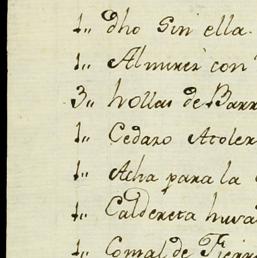 1,, dho Sin ella.
1,, Almirez con
3,, hollas de Barr
1,, Cedazo Atoler
1,, Acha para la
1,, Caldereta
1,, Comal de Fierr